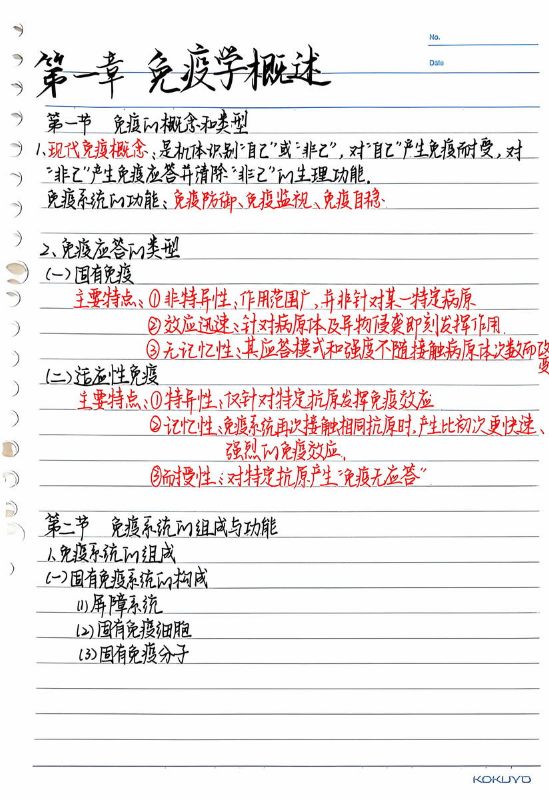 No.
Date
第一章 免疫学概述
第一节 免疫的概念和类型
1.现代免疫概念:是机体识别“自己”或“非己”,对“自己”产生免疫耐受,对
“非己”产生免疫应答并清除“非己”的生理功能.
免疫系统的功能:免疫防御、免疫监视、免疫自稳.
2、免疫应答的类型
(一)固有免疫
主要特点:①非特异性:作用范围广,并非针对某一特定病原
②效应迅速:针对病原体及异物侵袭即刻发挥作用.
③无记忆性:其应答模式和强度不随接触病原体次数而改变
(二)适应性免疫
主要特点:①特异性:仅针对特定抗原发挥免疫效应
②记忆性:免疫系统再次接触相同抗原时,产生比初次更快速、
强烈的免疫效应.
③耐受性:对特定抗原产生“免疫无应答”
第二节 免疫系统的组成与功能
1.免疫系统的组成
(一)固有免疫系统的构成
(1)屏障系统
(2)固有免疫细胞
(3)固有免疫分子
KOKUYO